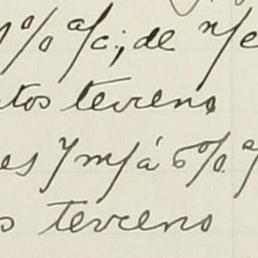 % a/c; de n/c
tos terreno
es y m/á 6% a/
s terreno